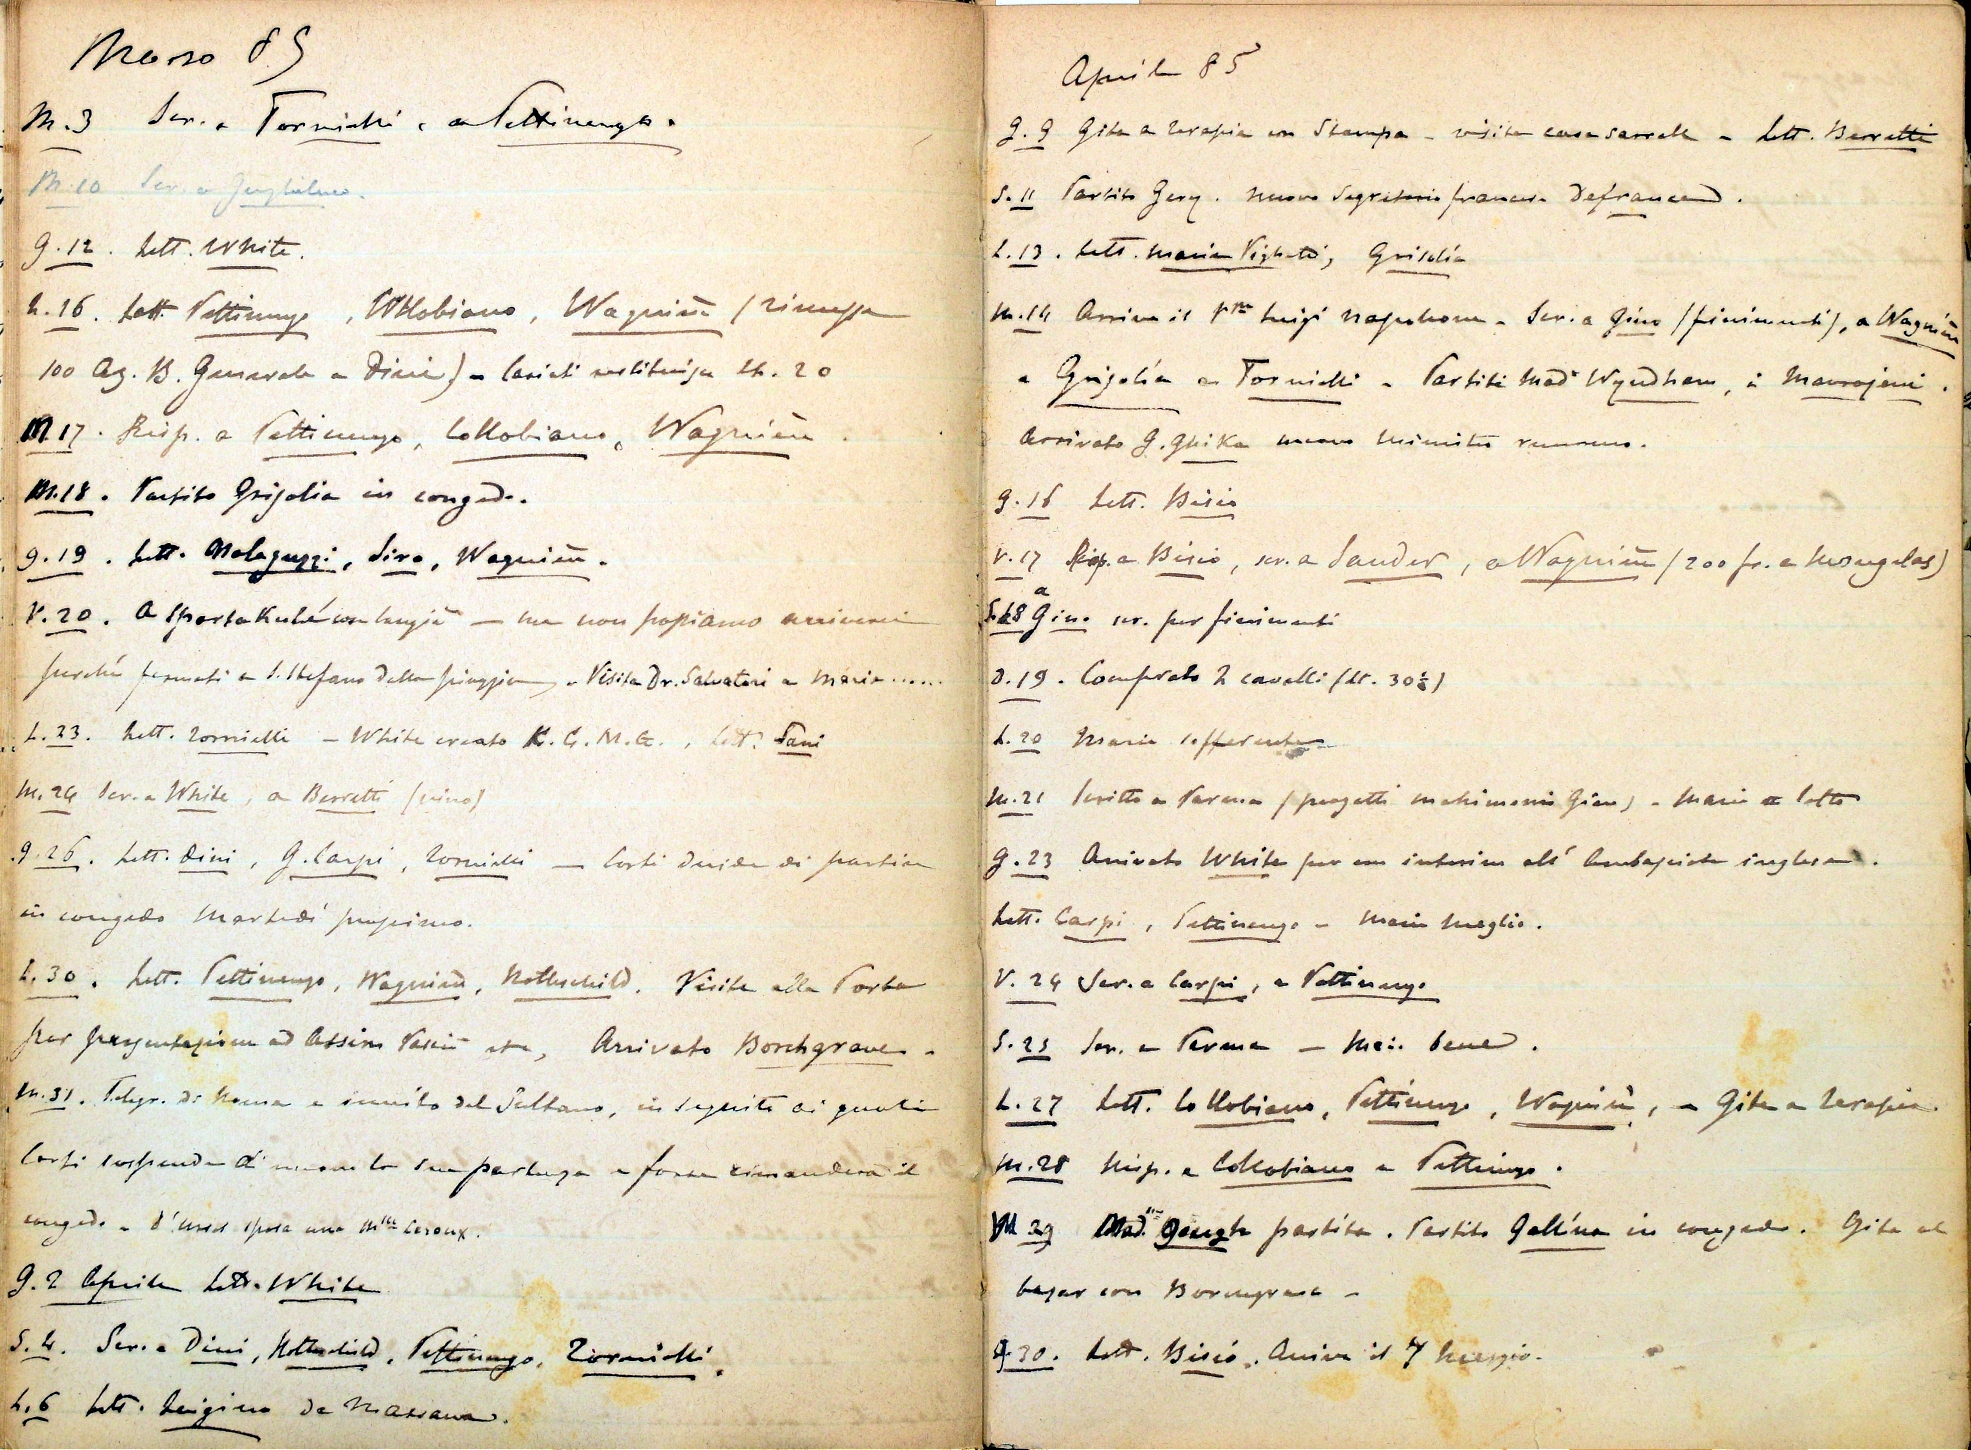 Marzo 85
M. 3 Scr. a Tornielli, a Pettinengo.
M. 10 Scr. a Guglielmo.
G. 12. Lett. White.
L. 16. Lett. Pettinengo, Collobiano, Wagnière (rimessa
100 Az. B. Generale a Dini) - Corti restituisce Lt. 20
M 17. Risp. a Pettinengo, Collobiano, Wagnière.
M. 18. Partito Grisolia in congedo.
G. 19. Lett. Malaguzzi, Siro, Wagnière.
V. 20. A con - ma non possiamo
perché fermati a S. Stefano dalla pioggia - Visita Dr. Salvatori a Maria.....
L. 23. Lett. Tornielli - White creato K. C. M. G., Lett. Pani
M. 24 Scr. a White, a Berretti (vino)
G. 26. Lett. Dini, G. Carpi, Tornielli - Corti decide di partire
in congedo Martedì prossimo.
L. 30. Lett. Pettinengo, Wagnière, Rothschild. Visita alla Porta
per presentazione ad Assim Pascià etc, Arrivato Borchgrave -
M. 31. Telegr. di Roma e invito del Sultano, in seguito ai quali
Corti sospende di nuovo la sua partenza e forse rimanderà il
congedo - sposa una Mlle Leroux.
G. 2 Aprile Lett. White
S. 4. Scr. a Dini, Rothschild, Pettinengo, Tornielli.
L. 6 Lett. Luigino da Massaua.
Aprile 85
G. 9 Gita a Terapia con Stampa - visita casa - Lett. Berretti
S. 11 Partito Gery. Nuovo Segretario francese Defrance.
L. 13. Lett. Maria Pighetti, Grisolia
M. 14 Arriva il Pce Luigi Napoleone - Scr. a Gino (finimenti), a Wagnière
a Grisolia a Tornielli - Partiti Mad. Wyndham, i Maurojeni.
Arrivato G. Ghika nuovo ministro rumeno.
G. 16 Lett. Bisio
V. 17 Risp. a Bisio, scr. a Sander, a Wagnière (200 fr. a Mongelas)
S. 18 a Gino scr. per finimenti
D. 19. Comprato 2 cavalli (Lt. 30)
L. 20 Maria sofferente
M. 21 Scritto a Parma (progetti matrimonio Gino) - Maria a letto
G. 23 Arrivato White per un interim all'Ambasciata inglese.
Lett. Carpi, Pettinengo - Maria meglio.
V. 24 Scr. a Carpi, a Pettinengo
S. 25 Scr. a Parma - Maria bene.
L. 27 Lett. Collobiano, Pettinengo, Wagnière, - Gita a Terapia
M. 28 Risp. a Collobiano a Pettinengo.
M 29 Mad. partita. Partito Gallina in congedo. Gita al
bazar con Borchgrave -
G. 30. Lett. Bisio. Arriva il 7 Maggio.